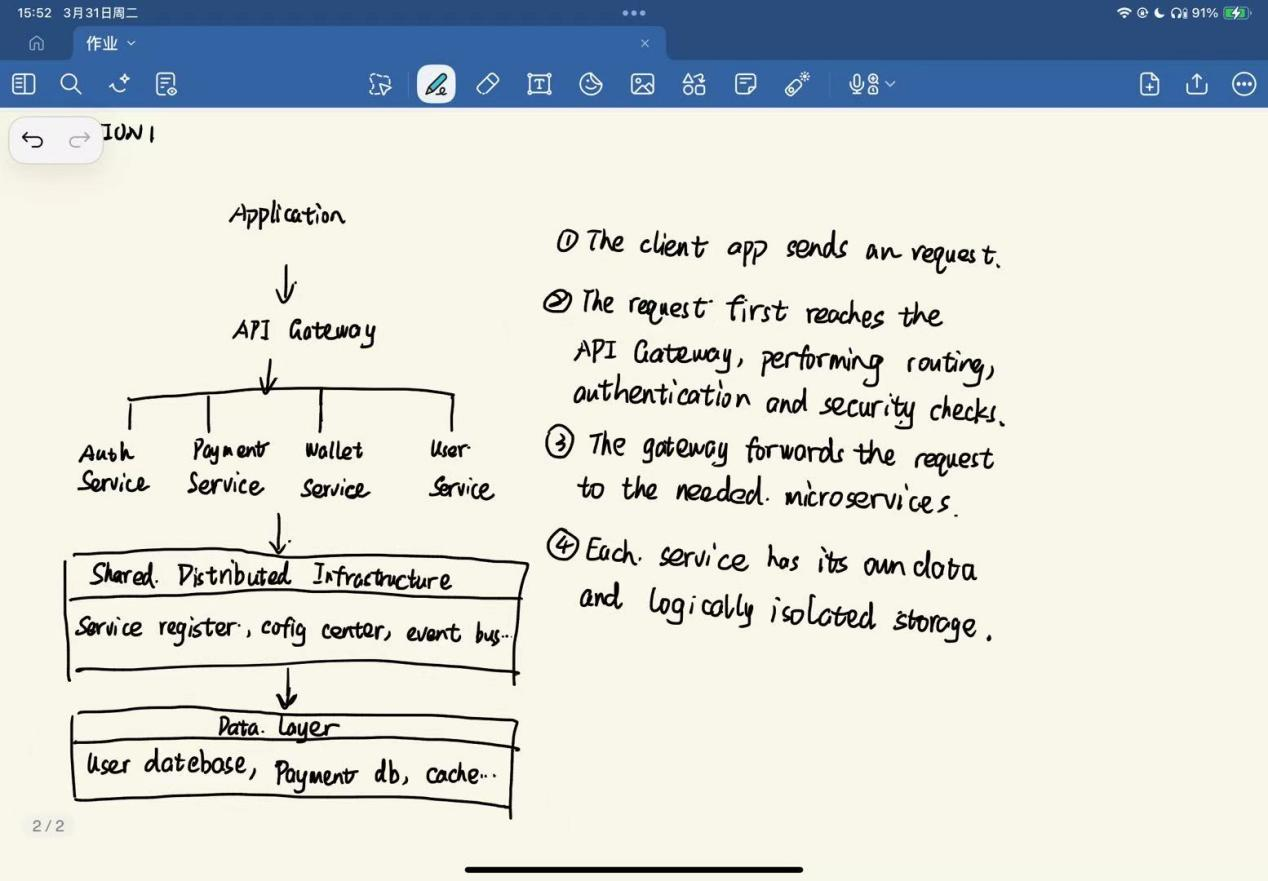 15:52 3月31日周二
91%
作业
TION 1
Application
API Gateway
Auth Service
Payment Service
Wallet Service
User Service
Shared Distributed Infrastructure
Service register, cofig center, event bus...
Data Layer
User datebase, Payment db, cache...
① The client app sends an request.
② The request first reaches the
API Gateway, performing routing,
authentication and security checks.
③ The gateway forwords the request
to the needed microservices.
④ Each service has its own data
and logically isolated storage.
2/2